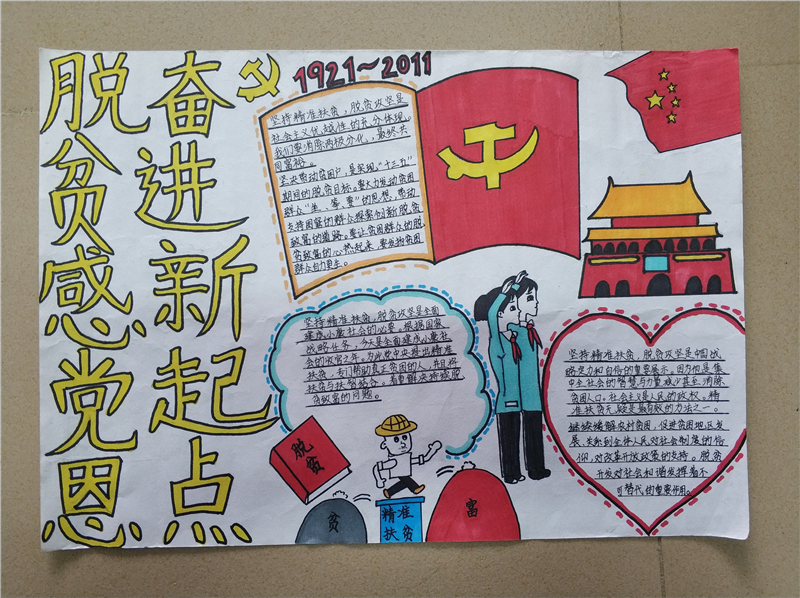 脱贫感党恩
奋进新起点
1921~2011
坚持精准扶贫,脱贫攻坚是
社会主义优越性的充分体现。
我们要消除两极分化,最终共
同富裕。
坚决带动贫困户,是实现"十三五"
期间的脱贫目标。要大力发动贫困
群众"坐、等、要"的思想,带动
支持困窘的群众探索创新脱贫
致富的道路。要让贫困群众的脱
贫致富的心热起来 要发扬贫困
群众自力更生。
坚持精准扶贫,脱贫攻坚是全面
建成小康社会的必要。根据国家
战略任务,今天是全面建成小康社
会的收官之年,为此党中央提出精准
扶贫,专门帮助真正贫困的人,并且将
扶贫与扶智结合,着重解决持续脱
贫致富的问题。
坚持精准扶贫,脱贫攻坚是中国战
略定力和自信的重要展示。因为他是集
中主社会的智慧与力量减少甚至消除
贫困人口。社会主义是人民的政权。精
准扶贫无疑是最有效的方法之一。
继续缓解农村贫困,促进贫困地区发
展、关系到全体人民对社会制度的信
仰,对改革开放政策的支持。脱贫
开发对社会和谐发挥着不
可替代的重要作用。
脱
贫
贫
精准
扶贫
富